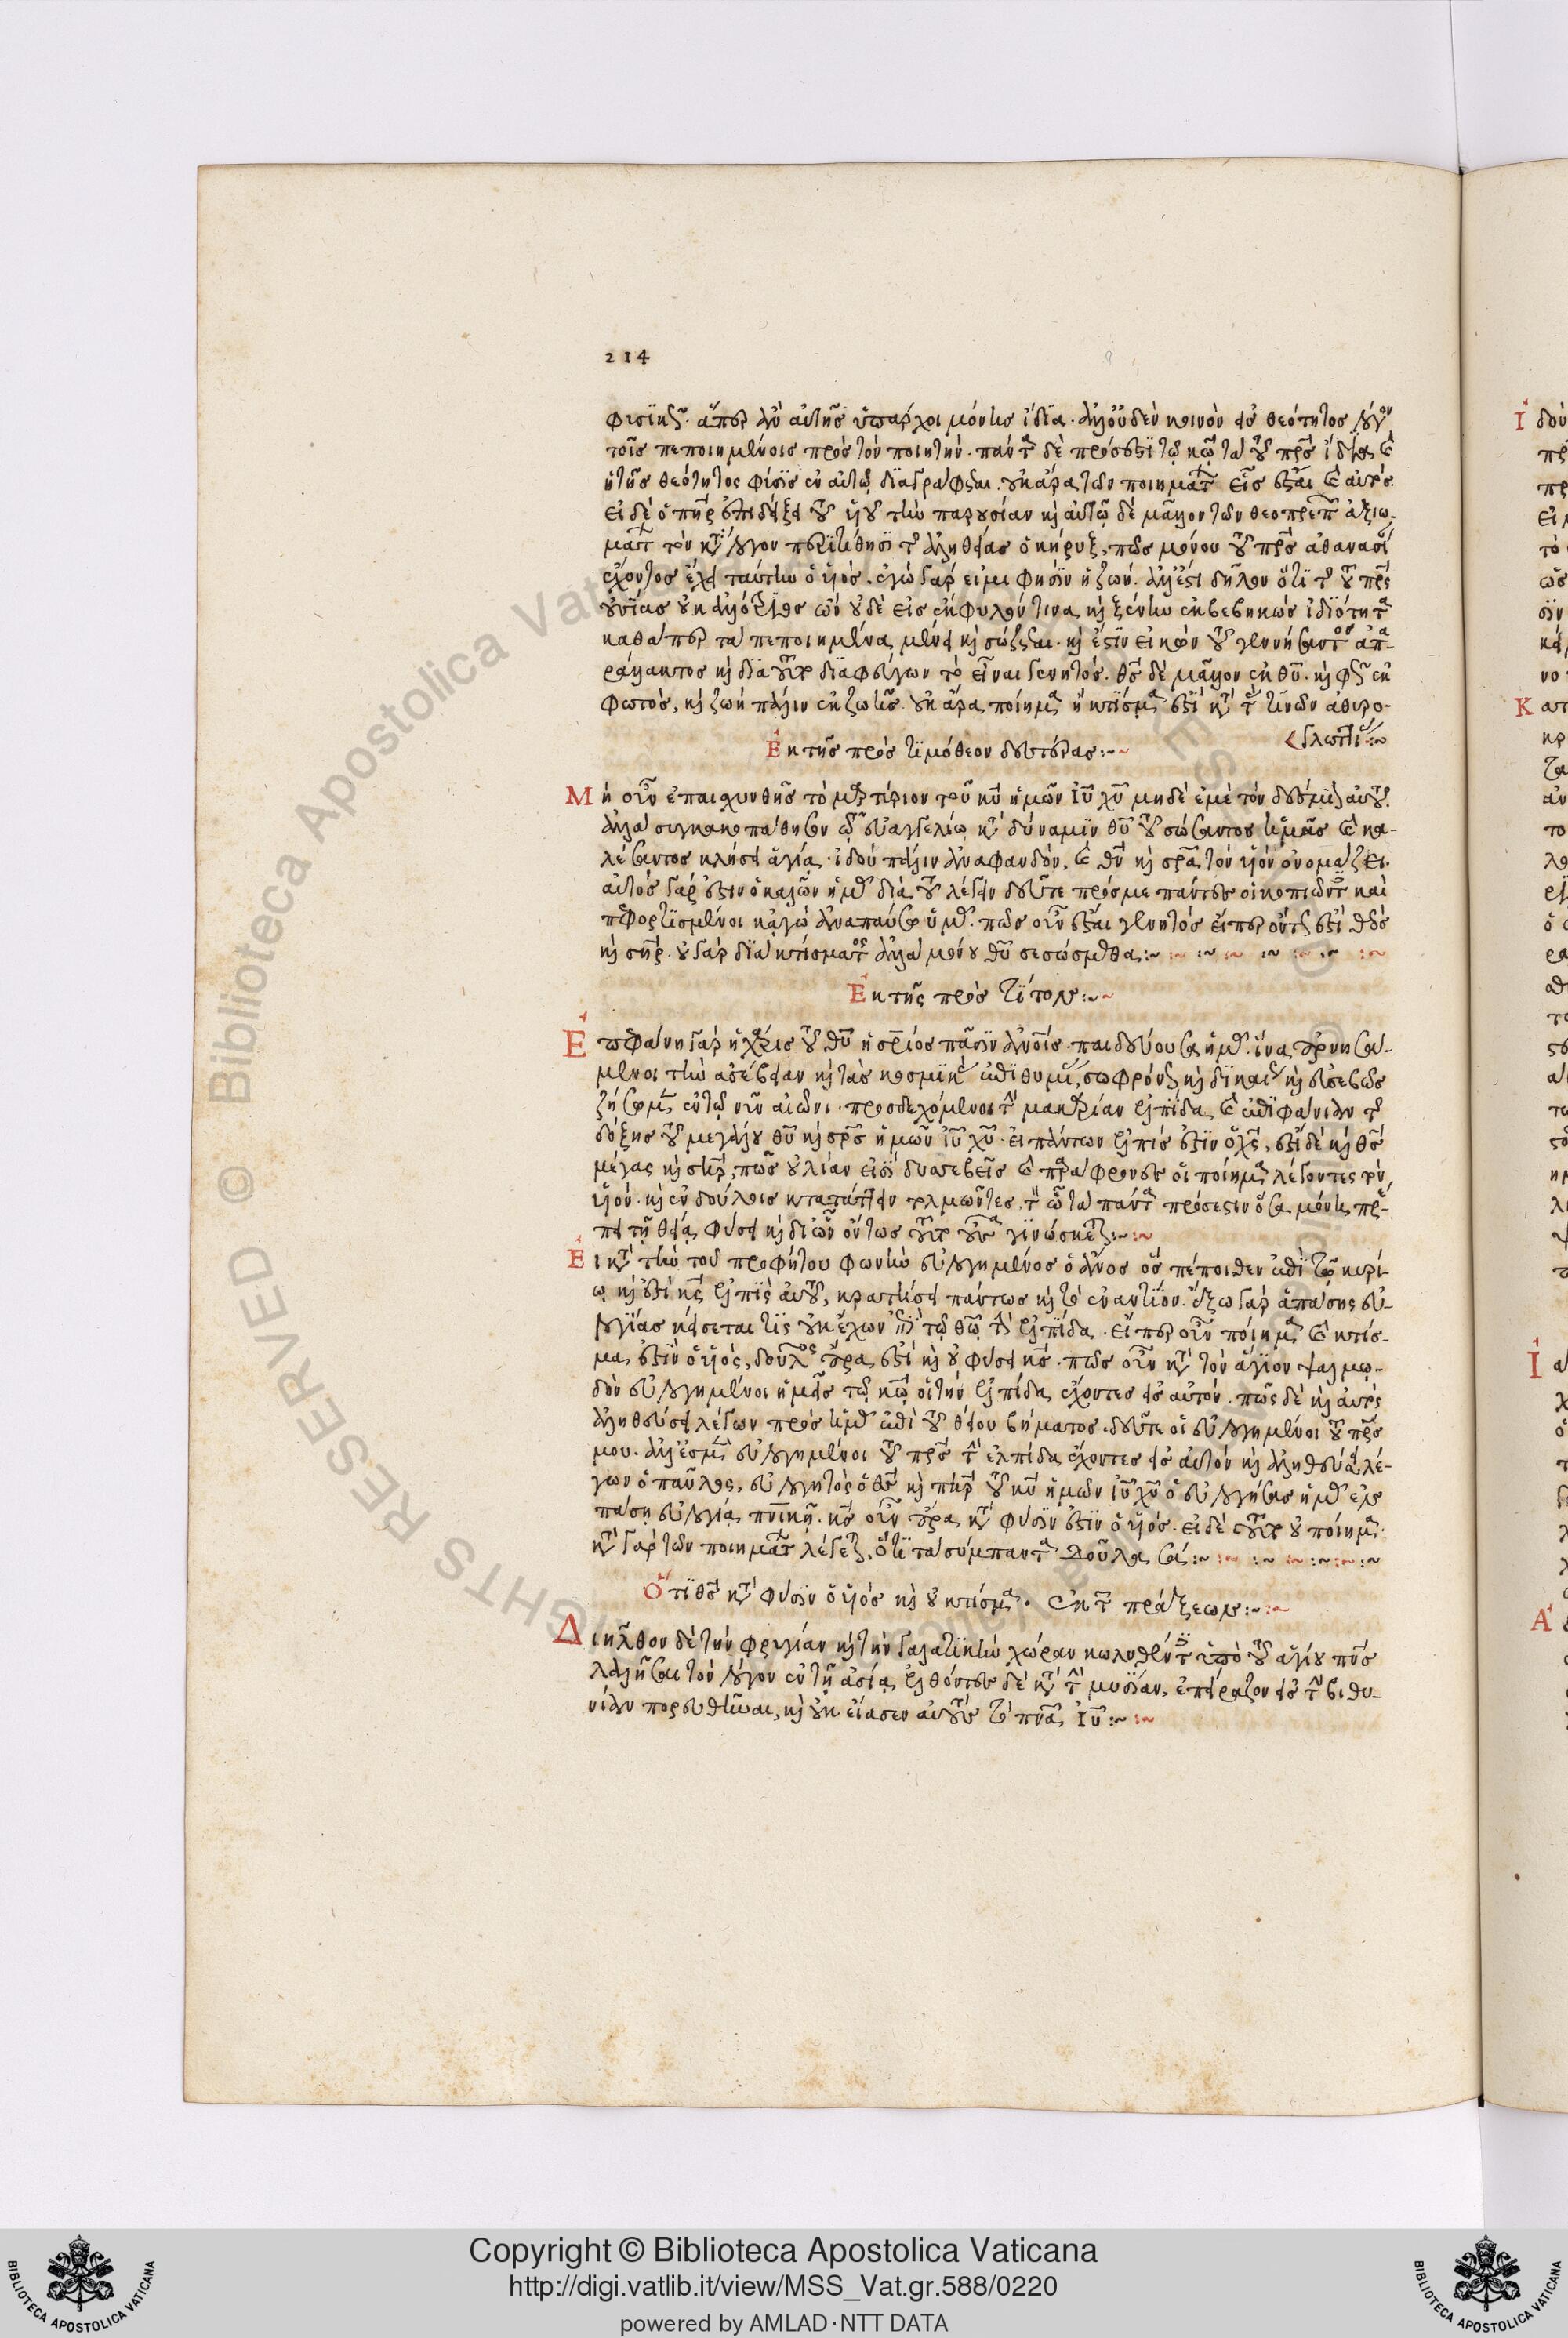 214
φυσικῶς. ἅπερ ἂν αὐτῆς ὑπάρχοι μόνης ἴδια. ἀλλ' οὐδὲν κοινὸν εἰς θεότητος λόγον
τοῖς πεποιημένοις πρὸς τὸν ποιητήν. πάντα δὲ πρόσεστι τῷ υἱῷ τὰ τοῦ πρς ἴδια, καὶ
ἡ τῆς θεότητος φύσις ἐν αὐτῷ διαγράφεται. οὐκ ἄρα τῶν ποιημάτων εἷς ἔσται καὶ αὐτός.
εἰ δὲ ὁ πηρ ἐπιδείξει τοῦ υἱοῦ τὴν παρουσίαν καὶ αὐτῷ δὲ μᾶλλον τῶν θεοπρεπῶν ἀξιω-
μάτων τὸν λόγον περιτίθησι τῆς ἀληθείας ὁ κήρυξ, πῶς μόνου τοῦ πρς ἀθανασίαν
ἔχοντος ἔχει ταύτην ὁ υἱός. ἐγὼ γάρ εἰμι φησὶν ἡ ζωή. ἀλλ' ἔστι δῆλον ὅτι τῆς τοῦ πρς
οὐσίας οὐκ ἀλλότριος ὢν οὐδὲ εἰς
καθάπερ τὰ πεποιημένα, μένει καὶ σώζεται. καὶ ἔστιν εἰκὼν τοῦ γεννήσαντος
καὶ διὰ τοῦτο διαφεύγων τὸ εἶναι γενητός. θς δὲ μᾶλλον ἐκ θυ. καὶ φῶς ἐκ
φωτός, καὶ ζωὴ πάλιν ἐκ ζωῆς. οὐκ ἄρα ποίημα ἢ κτίσμα ἐστὶ κατὰ τήν τινων ἀθυρο-
γλωττίαν:~
Ἐκ τῆς πρὸς Τιμόθεον δευτέρας:~
Μὴ οὖν ἐπαισχυνθῇς τὸ μαρτύριον τοῦ κυ ἡμῶν ἰυ χυ μηδὲ ἐμὲ τὸν δέσμιον αὐτοῦ.
ἀλλὰ συγκακοπάθησον τῷ εὐαγγελίῳ κατὰ δύναμιν θυ τοῦ σώσαντος ἡμᾶς καὶ κα-
λέσαντος κλήσει ἁγίᾳ. ἰδοὺ πάλιν ἀναφανδόν, καὶ θν καὶ σρα τὸν υἱὸν ὀνομάζει.
αὐτὸς γάρ ἐστιν ὁ καλῶν ἡμᾶς διὰ τοῦ λέγειν δεῦτε πρός με πάντες οἱ κοπιῶντες καὶ
πεφορτισμένοι κἀγὼ ἀναπαύσω ὑμᾶς. πῶς οὖν ἔσται γενητὸς εἴπερ οὗτός ἐστι θεὸς
καὶ σηρ. οὐ γὰρ διὰ κτίσματος ἀλλὰ μόνου θυ σεσώσμεθα:~ :~ :~ :~ :~ :~ :~ :~
Ἐκ τῆς πρὸς Τίτον:~
Ἐπεφάνη γὰρ ἡ χάρις τοῦ θυ ἡ σριος πᾶσιν ἀνοις. παιδεύουσα ἡμᾶς. ἵνα ἀρνησά-
μενοι τὴν ἀσέβειαν καὶ τὰς κοσμικὰς ἐπιθυμίας, σωφρόνως καὶ δικαίως καὶ εὐσεβῶς
ζήσωμεν ἐν τῷ νῦν αἰῶνι. προσδεχόμενοι τὴν μακαρίαν ἐλπίδα, καὶ ἐπιφάνειαν τῆς
δόξης τοῦ μεγάλου θυ καὶ σρς ἡμῶν ἰυ χυ. εἰ πάντων ἐλπίς ἐστιν ὁ χς, ἔστι δὲ καὶ θς
μέγας καὶ σηρ, πῶς οὐ λίαν εἰσὶ δυσσεβεῖς καὶ παράφρονες οἱ ποίημα λέγοντες τὸν
υἱόν. καὶ ἐν δούλοις κατατάττειν τολμῶντες, ᾧ τὰ πάντα πρόσεστιν ὅσα μόνῃ πρέ-
πει τῇ θείᾳ φύσει καὶ δι' ὧν ὄντως γινώσκεται:~
Εἰ κατὰ τὴν τοῦ προφήτου φωνὴν εὐλογημένος ὁ ἄνος ὃς πέποιθεν ἐπὶ τῷ κυρί-
ῳ καὶ ἔστι κς ἐλπὶς αὐτοῦ, κρατήσει πάντως καὶ τὸ ἐναντίον. ἔξω γὰρ ἁπάσης εὐ-
λογίας κείσεται τις οὐκ ἔχων ἐπὶ τῷ θῷ τὴν ἐλπίδα. εἴπερ οὖν ποίημα καὶ κτίσ-
μα ἐστὶν ὁ υἱός, δοῦλος ἄρα ἐστὶ καὶ οὐ φύσει κς. πῶς οὖν κατὰ τὸν ἅγιον ψαλμῳ-
δὸν εὐλογημένοι ἡμεῖς τῷ κῷ οἱ τὴν ἐλπίδα ἔχοντες εἰς αὐτόν. πῶς δὲ καὶ αὐτὸς
ἀληθεύσει λέγων πρὸς ἡμᾶς ἐπὶ τοῦ θείου βήματος. δεῦτε οἱ εὐλογημένοι τοῦ πρς
μου. ἀλλ' ἐσμὲν εὐλογημένοι τοῦ πρς τὴν ἐλπίδα ἔχοντες εἰς αὐτὸν καὶ ἀληθεύει λέ-
γων ὁ παῦλος, εὐλογητὸς ὁ θς καὶ πηρ τοῦ κυ ἡμῶν ἰυ χυ ὁ εὐλογήσας ἡμᾶς ἐν
πάσῃ εὐλογίᾳ πνικῇ. κς οὖν ἄρα κατὰ φύσιν ἐστὶν ὁ υἱός. εἰ δὲ τοῦτο οὐ ποίημα.
κατὰ γὰρ τῶν ποιημάτων λέγεται, ὅτι τὰ σύμπαντα δοῦλα σά:~ :~ :~ :~ :~ :~ :~
Ὅτι θς κατὰ φύσιν ὁ υἱὸς καὶ οὐ κτίσμα. ἐκ τῶν πράξεων:~
Διῆλθον δὲ τὴν φρυγίαν καὶ τὴν γαλατικὴν χώραν κωλυθέντες ὑπὸ τοῦ ἁγίου πνς
λαλῆσαι τὸν λόγον ἐν τῇ ἀσίᾳ. ἐλθόντες δὲ κατὰ τὴν μυσίαν, ἐπείραζον εἰς τὴν βιθυ-
νίαν πορευθῆναι, καὶ οὐκ εἴασεν αὐτοὺς τὸ πνα ἰυ:~
Copyright © Biblioteca Apostolica Vaticana
http://digi.vatlib.it/view/MSS_Vat.gr.588/0220
powered by AMLAD·NTT DATA